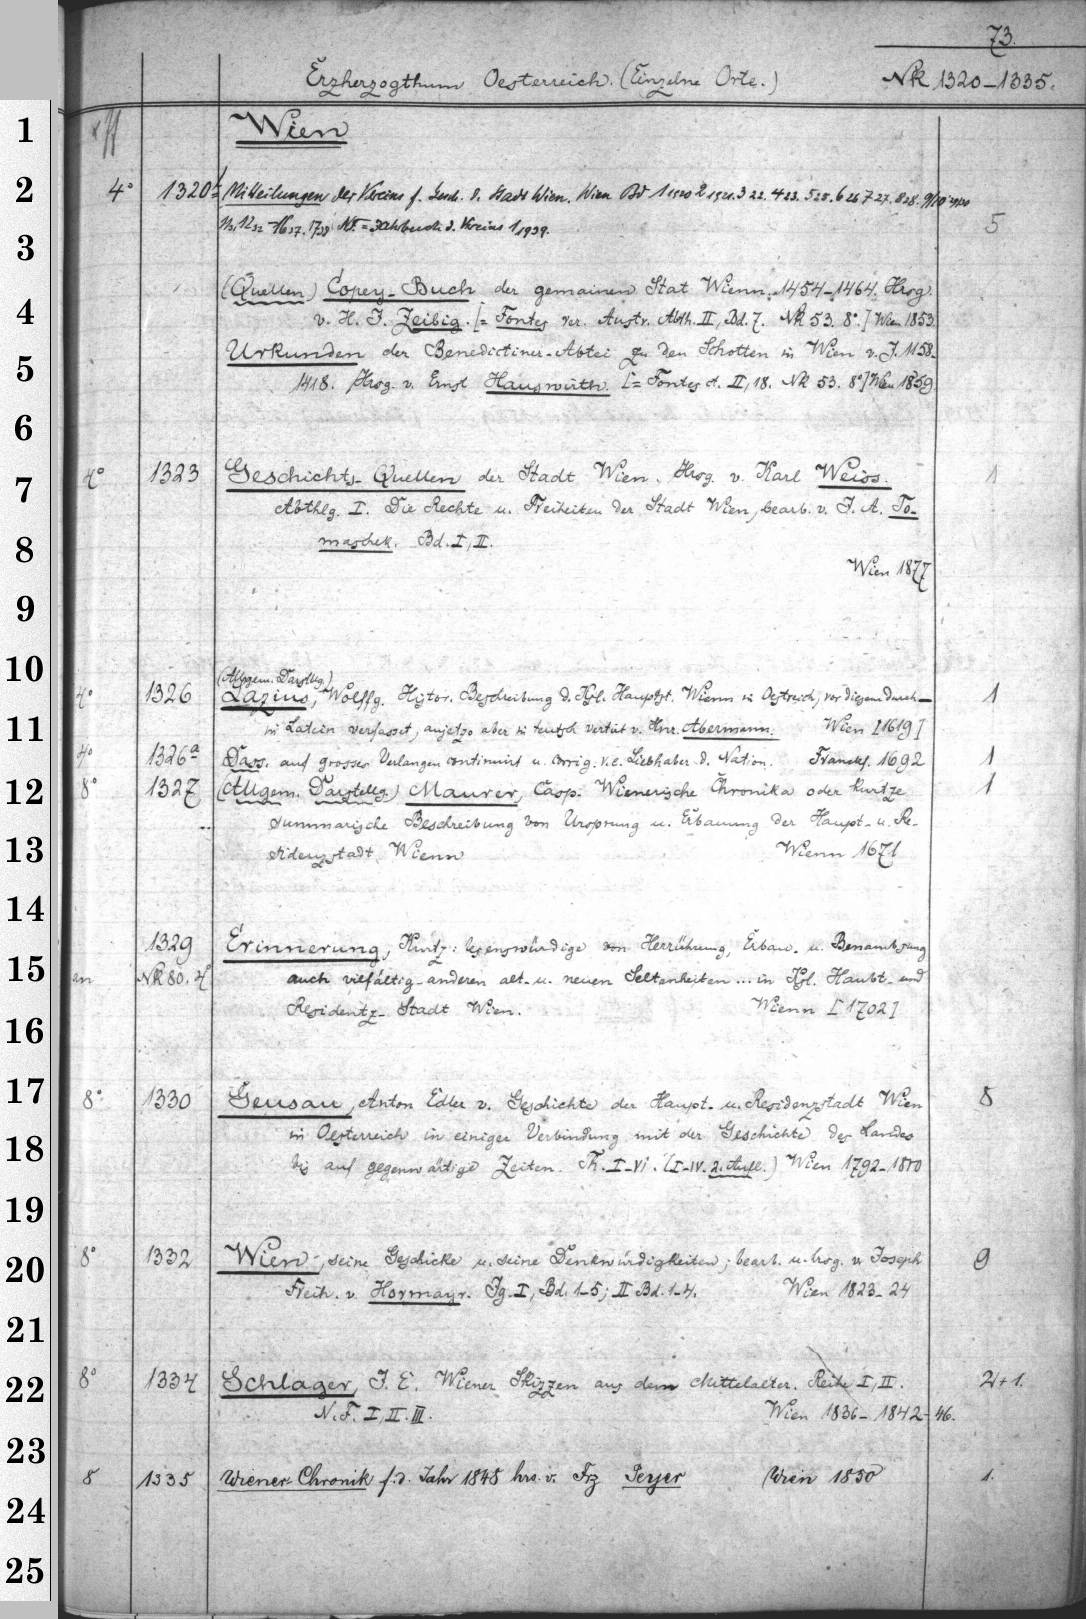 73.
Erzherzogthum Oesterreich. (Einzelne Orte.) Nk 1320–1335.
Wien
4° 1320 Mitteilungen des Vereins f. Gesch. d. Stadt Wien. Wien Bd 1 1920 2 1921. 3 22. 4 23. 5 25. 6 26 7 27. 8 28. 9/10
5
N.F. = Jahrbuch d. Vereins 1 1939.
(Quellen) Copey-Buch der gemainen Stat Wienn. 1454–1464. Hrsg.
v. H. J. Zeibig. [= Fontes rer. Austr. Abth. II, Bd. 7. Nk 53. 8°.] Wien 1853.
Urkunden der Benedictiner-Abtei zu den Schotten in Wien v. J. 1158–
1418. Hrsg. v. Ernst Hauswirth. [= Fontes et. II, 18. Nk 53. 8°] Wien 1859.
4° 1323 Geschichts-Quellen der Stadt Wien. Hrsg. v. Karl Weiss. 1
Abthlg. I. Die Rechte u. Freiheiten der Stadt Wien, bearb. v. J. A. To-
maschek. Bd. I, II.
Wien 1877
(Allgem. Darstllg.)
4° 1326 Lazius, Wolffg. Histor. Beschreibung d. Kgl. Hauptst. Wienn in Oestreich, vor diesem durch – 1
in Latein verfasset, anjetzo aber in teutsch vertirt v. Hnr. Abermann. Wien [1619]
4° 1326a Dass. auf grosses Verlangen continuirt u. corrig. v. e. Liebhaber d. Nation. Franckf. 1692 1
8° 1327 (Allgem. Darstellg.) Maurer, Casp. Wienerische Chronika oder kurtze 1
summarische Beschreibung von Ursprung u. Erbauung der Haupt- u. Re-
sidenzstadt Wienn Wienn 1671
1329 Erinnerung, Kurtz: lesenswürdige von Herrührung, Erbau- u. Benambsung
an Nk 80. 4° auch vielfältig anderen alt- u. neuen Seltenheiten ... in Kgl. Haubt- und
Residentz-Stadt Wien. Wienn [1702]
8° 1330 Geusau, Anton Edler v. Geschichte der Haupt- u. Residenzstadt Wien 5
in Oesterreich in einiger Verbindung mit der Geschichte des Landes
bis auf gegenwärtige Zeiten. Th. I–VI. (I–IV. 2. Aufl.) Wien 1792–1810
8° 1332 Wien, seine Geschicke u. seine Denkwürdigkeiten, bearb. u. hrsg. v. Joseph 9
Freih. v. Hormayr. Jg. I, Bd. 1–5; II Bd. 1–4. Wien 1823–24
8° 1334 Schlager, J. E. Wiener Skizzen aus dem Mittelalter. Reihe I, II. 2 + 1.
N. F. I, II. III. Wien 1836–1842–46.
8 1335 Wiener-Chronik f. d. Jahr 1848 hrs. v. Frz Wien 1850 1.
1
2
3
4
5
6
7
8
9
10
11
12
13
14
15
16
17
18
19
20
21
22
23
24
25